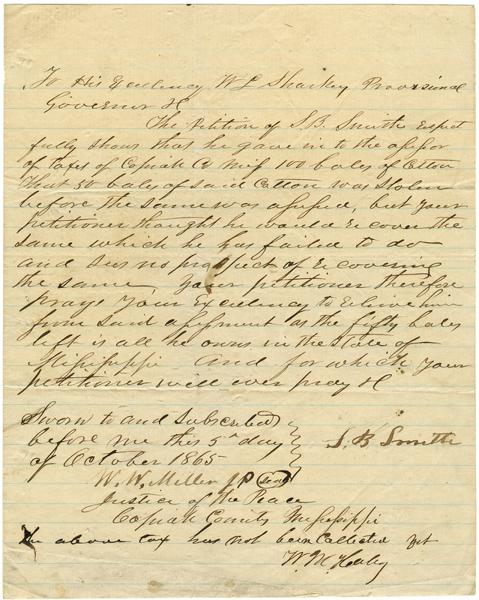 To His Excelency W L Sharkey Provisional
Governor &c
The Petition of S. B. Smith respect
fully shows that he gave in to the assessor
of taxes of Copiah Co Miss 100 bales of Cotton
that 50 bales of said Cotton was stolen
before the same was assessed, but your
petitioner thought he would recover the
same which he has failed to do
and sees no prospect of recovering
the same, your petitioner therefore
prays your Excelency to relieve him
from said assessment as the fifty bales
left is all he owns in the state of
Mississippi And for which your
petitioner will ever pray &c
Sworn to and subscribed
before me this 5th day
of October 1865
S. B Smith
W. W. Miller JP seal
Justice of the Peace
Copiah County Mississippi
The above tax has not been Collected yet
W. M. Haley